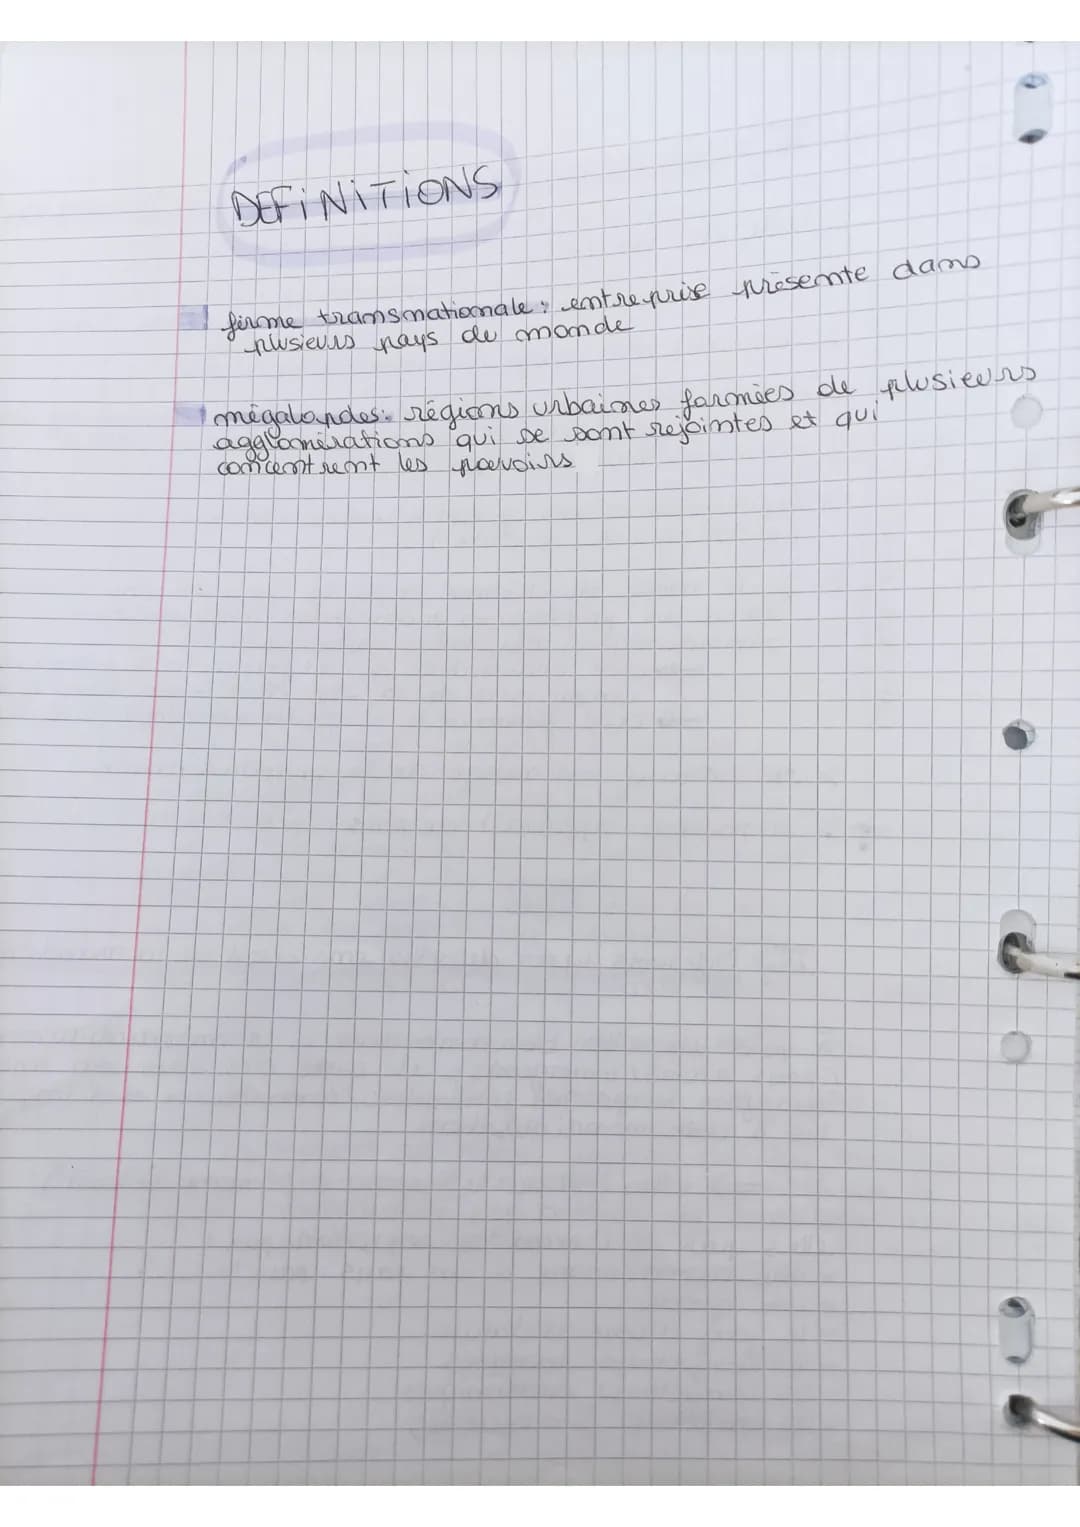 DEFINITIONS
firme transnationale : entreprise présente dans
plusieurs pays du monde
mégalopdes : régions urbaines formées de plusieurs
agglomérations qui se sont rejointes et qui
concentrent les pouvoirs